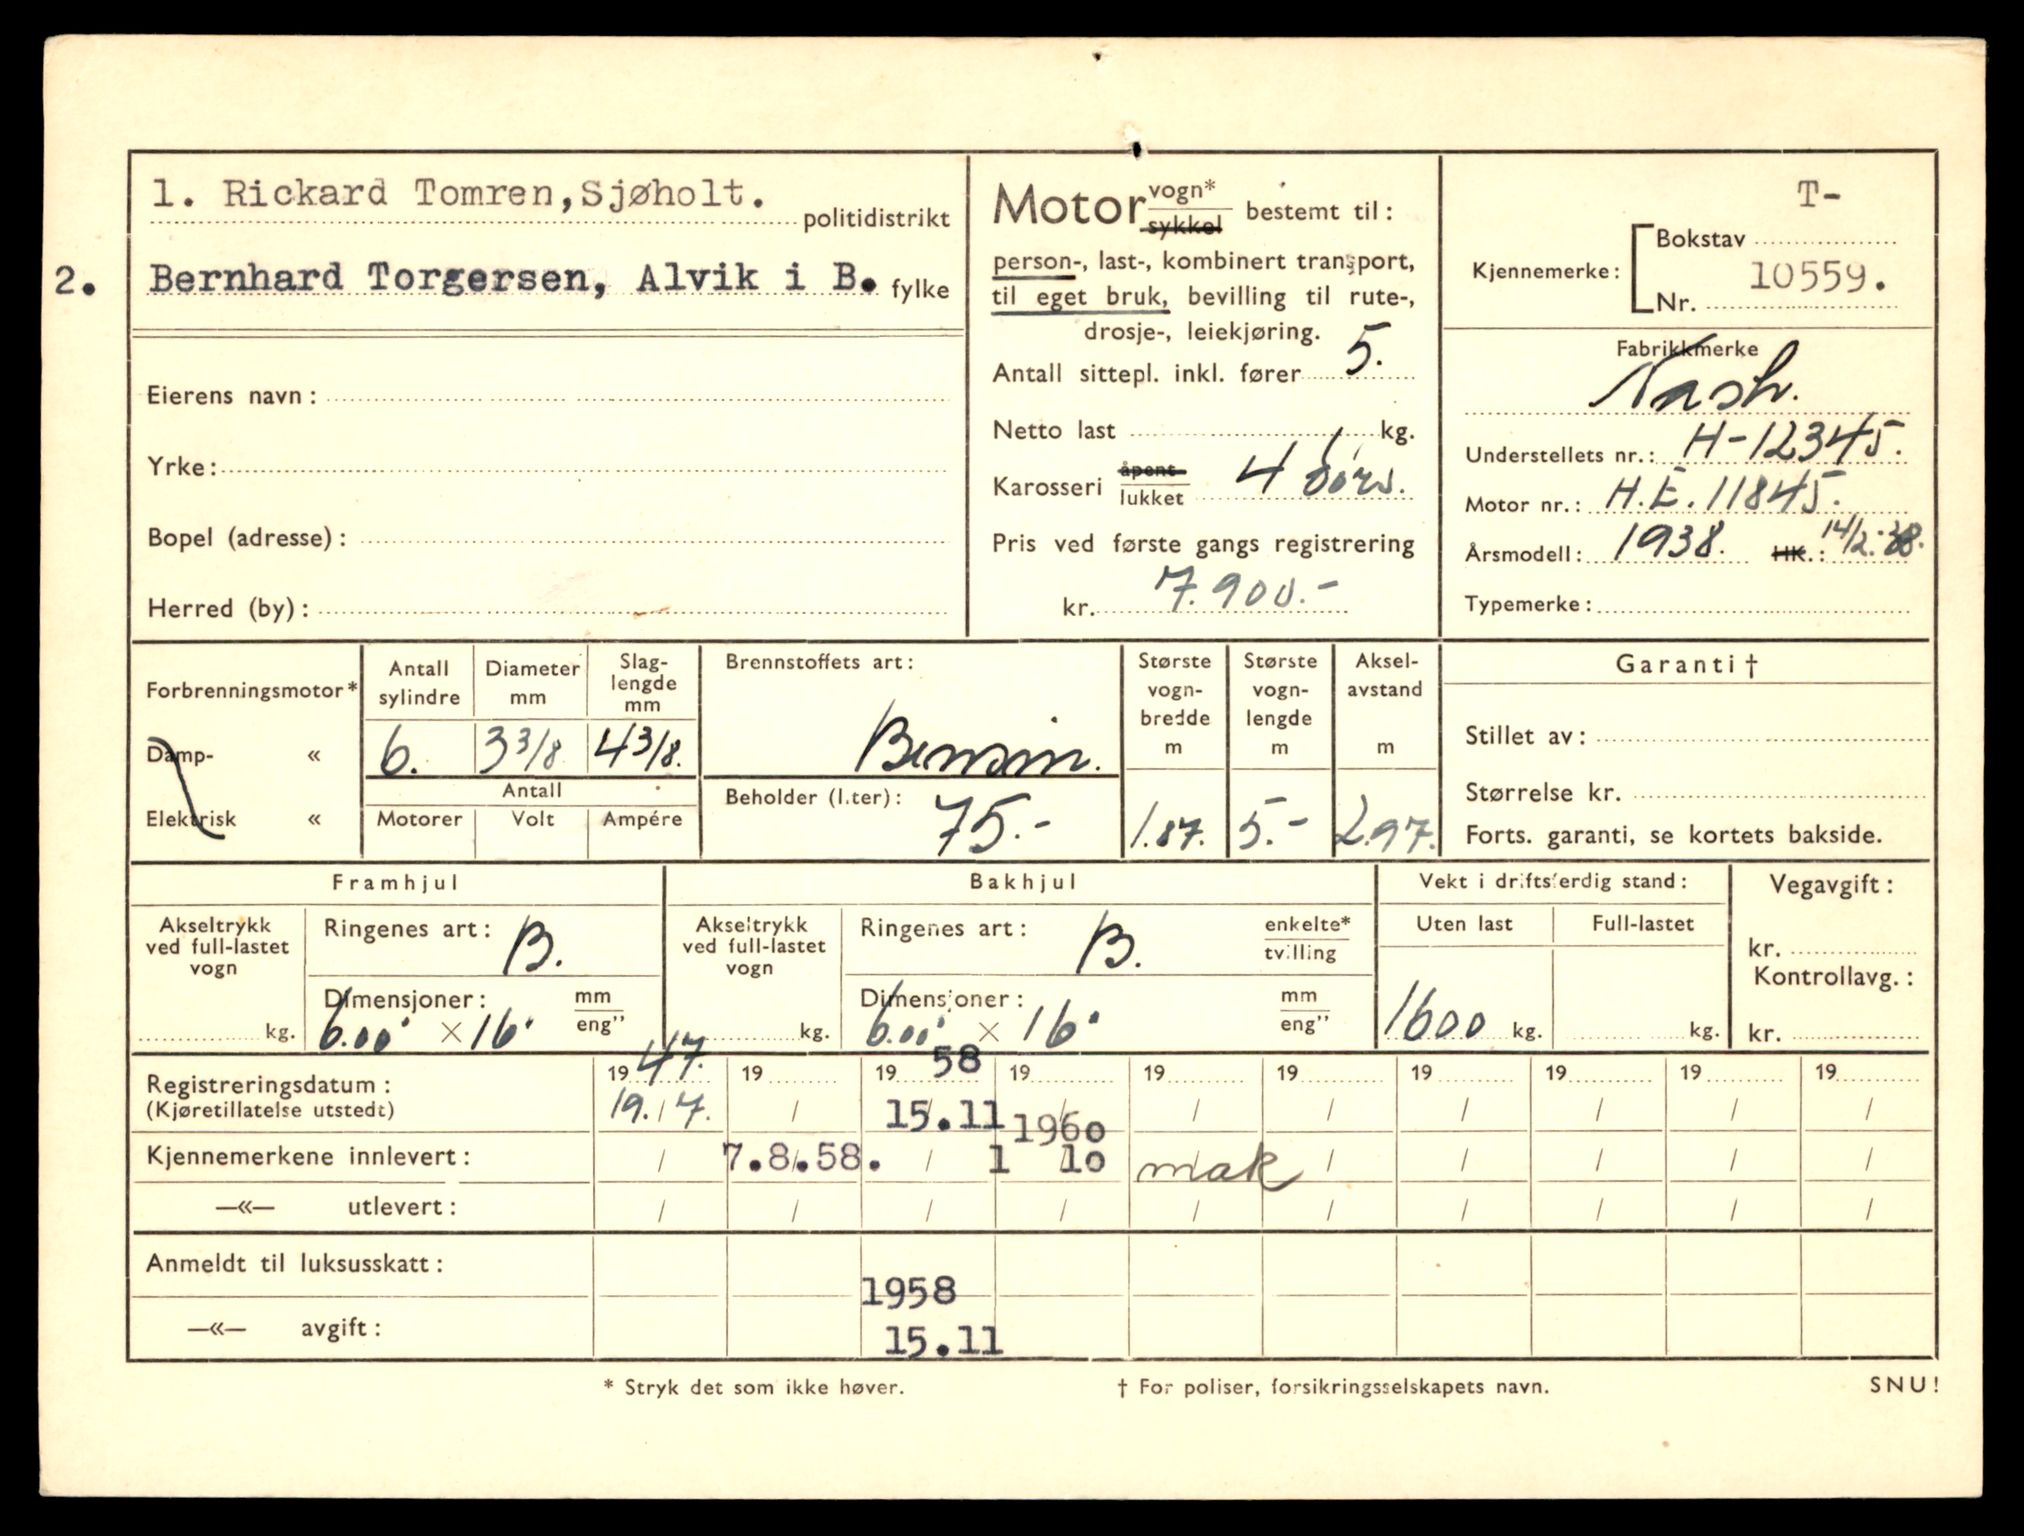 1. Rickard Tomren, Sjøholt. politidistrikt
2. Bernhard Torgersen, Alvik i B. fylke
Eierens navn:
Yrke:
Bopel (adresse):
Herred (by):
Motor vogn* / sykkel bestemt til:
person-, last-, kombinert transport,
til eget bruk, bevilling til rute-,
drosje-, leiekjøring.
Antall sittepl. inkl. fører 5.
Netto last kg.
Karosseri åpent / lukket 4 dørs.
Pris ved første gangs registrering
kr. 7.900.-
T-
Kjennemerke: Bokstav
10559.
Nr.
Fabrikkmerke
Nash.
Understellets nr.: H-12345.
Motor nr.: H.E. 11845.
Årsmodell: 1938. HK.: 14/2.-38.
Typemerke:
Forbrenningsmotor*
Damp- «
Elektrisk «
Antall sylindre
6.
Diameter mm
3 3/8
Slag-lengde mm
4 3/8.
Antall
Motorer Volt Ampére
Brennstoffets art:
Bensin.
Beholder (liter):
75.-
Største vogn-bredde m
1.87.
Største vogn-lengde m
5.-
Aksel-avstand m
2.97.
Garanti †
Stillet av:
Størrelse kr.
Forts. garanti, se kortets bakside.
Framhjul
Akseltrykk ved full-lastet vogn
kg.
Ringenes art: B.
Dimensjoner: mm / eng”
6.00 × 16"
Bakhjul
Akseltrykk ved full-lastet vogn
kg.
Ringenes art: B. enkelte* / tvilling
Dimensjoner: mm / eng”
6.00 × 16"
Vekt i driftsferdig stand:
Uten last Full-lastet
1600 kg. kg.
Vegavgift:
kr.
Kontrollavg.:
kr.
Registreringsdatum: 19 47. 19 19 58 19 19 19 19 19 19 19
(Kjøretillatelse utstedt) 19. / 7. / 15.11 / / / / / / /
1960
Kjennemerkene innlevert: / 7.8.58. / 1 10 mak / / / / /
—«— utlevert: / / / / / / / / / /
Anmeldt til luksusskatt:
1958
—«— avgift: 15.11
* Stryk det som ikke høver. † For poliser, forsikringsselskapets navn. SNU!